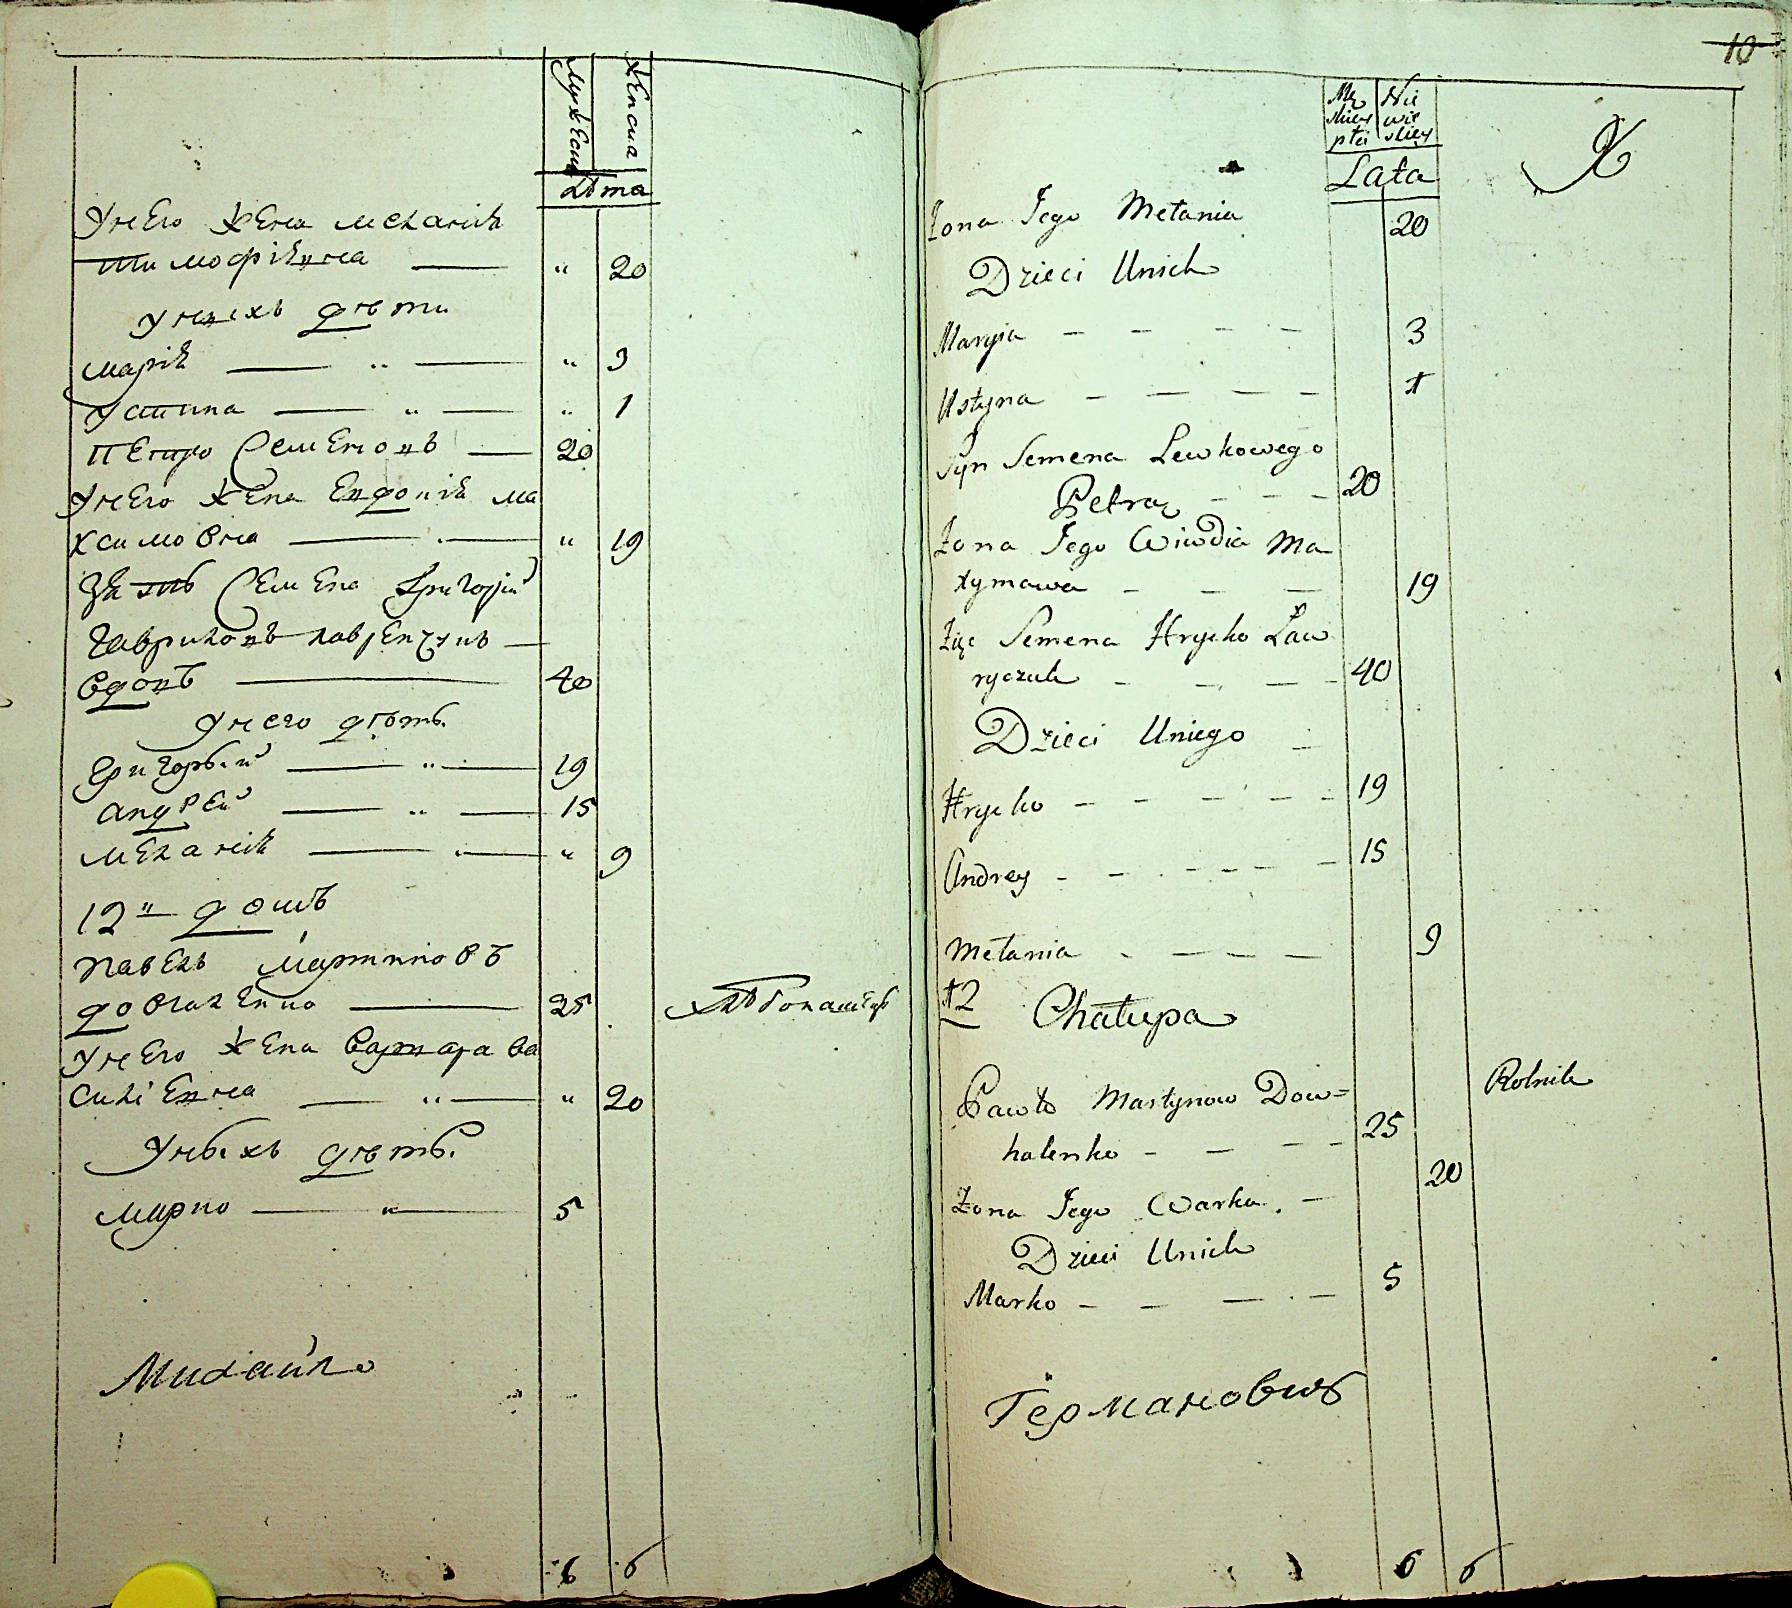 Мужеска Женска
Лѣта
У него Жена Меланія
Тимофіѣвна — " 20
У нихъ дѣти
Марія — " — " 3
Устина — " — " 1
Петро Семеновъ — 20
У него Жена Евдокія Ма
ксимовна — " 19
Зять Семена Григорій
Гавриловъ Лавренчукъ —
вдовъ — 40
У него дѣти
Григорий — " — 19
Андрей — " — 15
Меланія — " — " 9
12" домъ
Павелъ Мартиновъ
Довгаленко — 25 Хлѣбопашецъ
У него Жена Варвара Ва
силіевна — " — " 20
У нихъ дѣти
Марко — " — 5
Михайло
6 6
10
Męskiey płci Niewieskiey
Lata
Żona Jego Mełania 20
Dzieci Unich
Maryia - - - - 3
Ustyna - - - - 1
Syn Semena Lewkowego
Petra - - - 20
Żona Jego Wiwdia Ma
xymowa - - - 19
Zięć Semena Hryćko Ław
ryczuk - - - - 40
Dzieci Uniego -
Hryćko - - - - - - 19
Andrey - - - - - - 15
Mełania - - - - - 9
12 Chałupa
Pawło Martynow Dow= Rolnik
halenko - - - - 25
Żona Jego Warka. - 20
Dzieci Unich
Marko - - - - - 5
Германовичъ
6 6